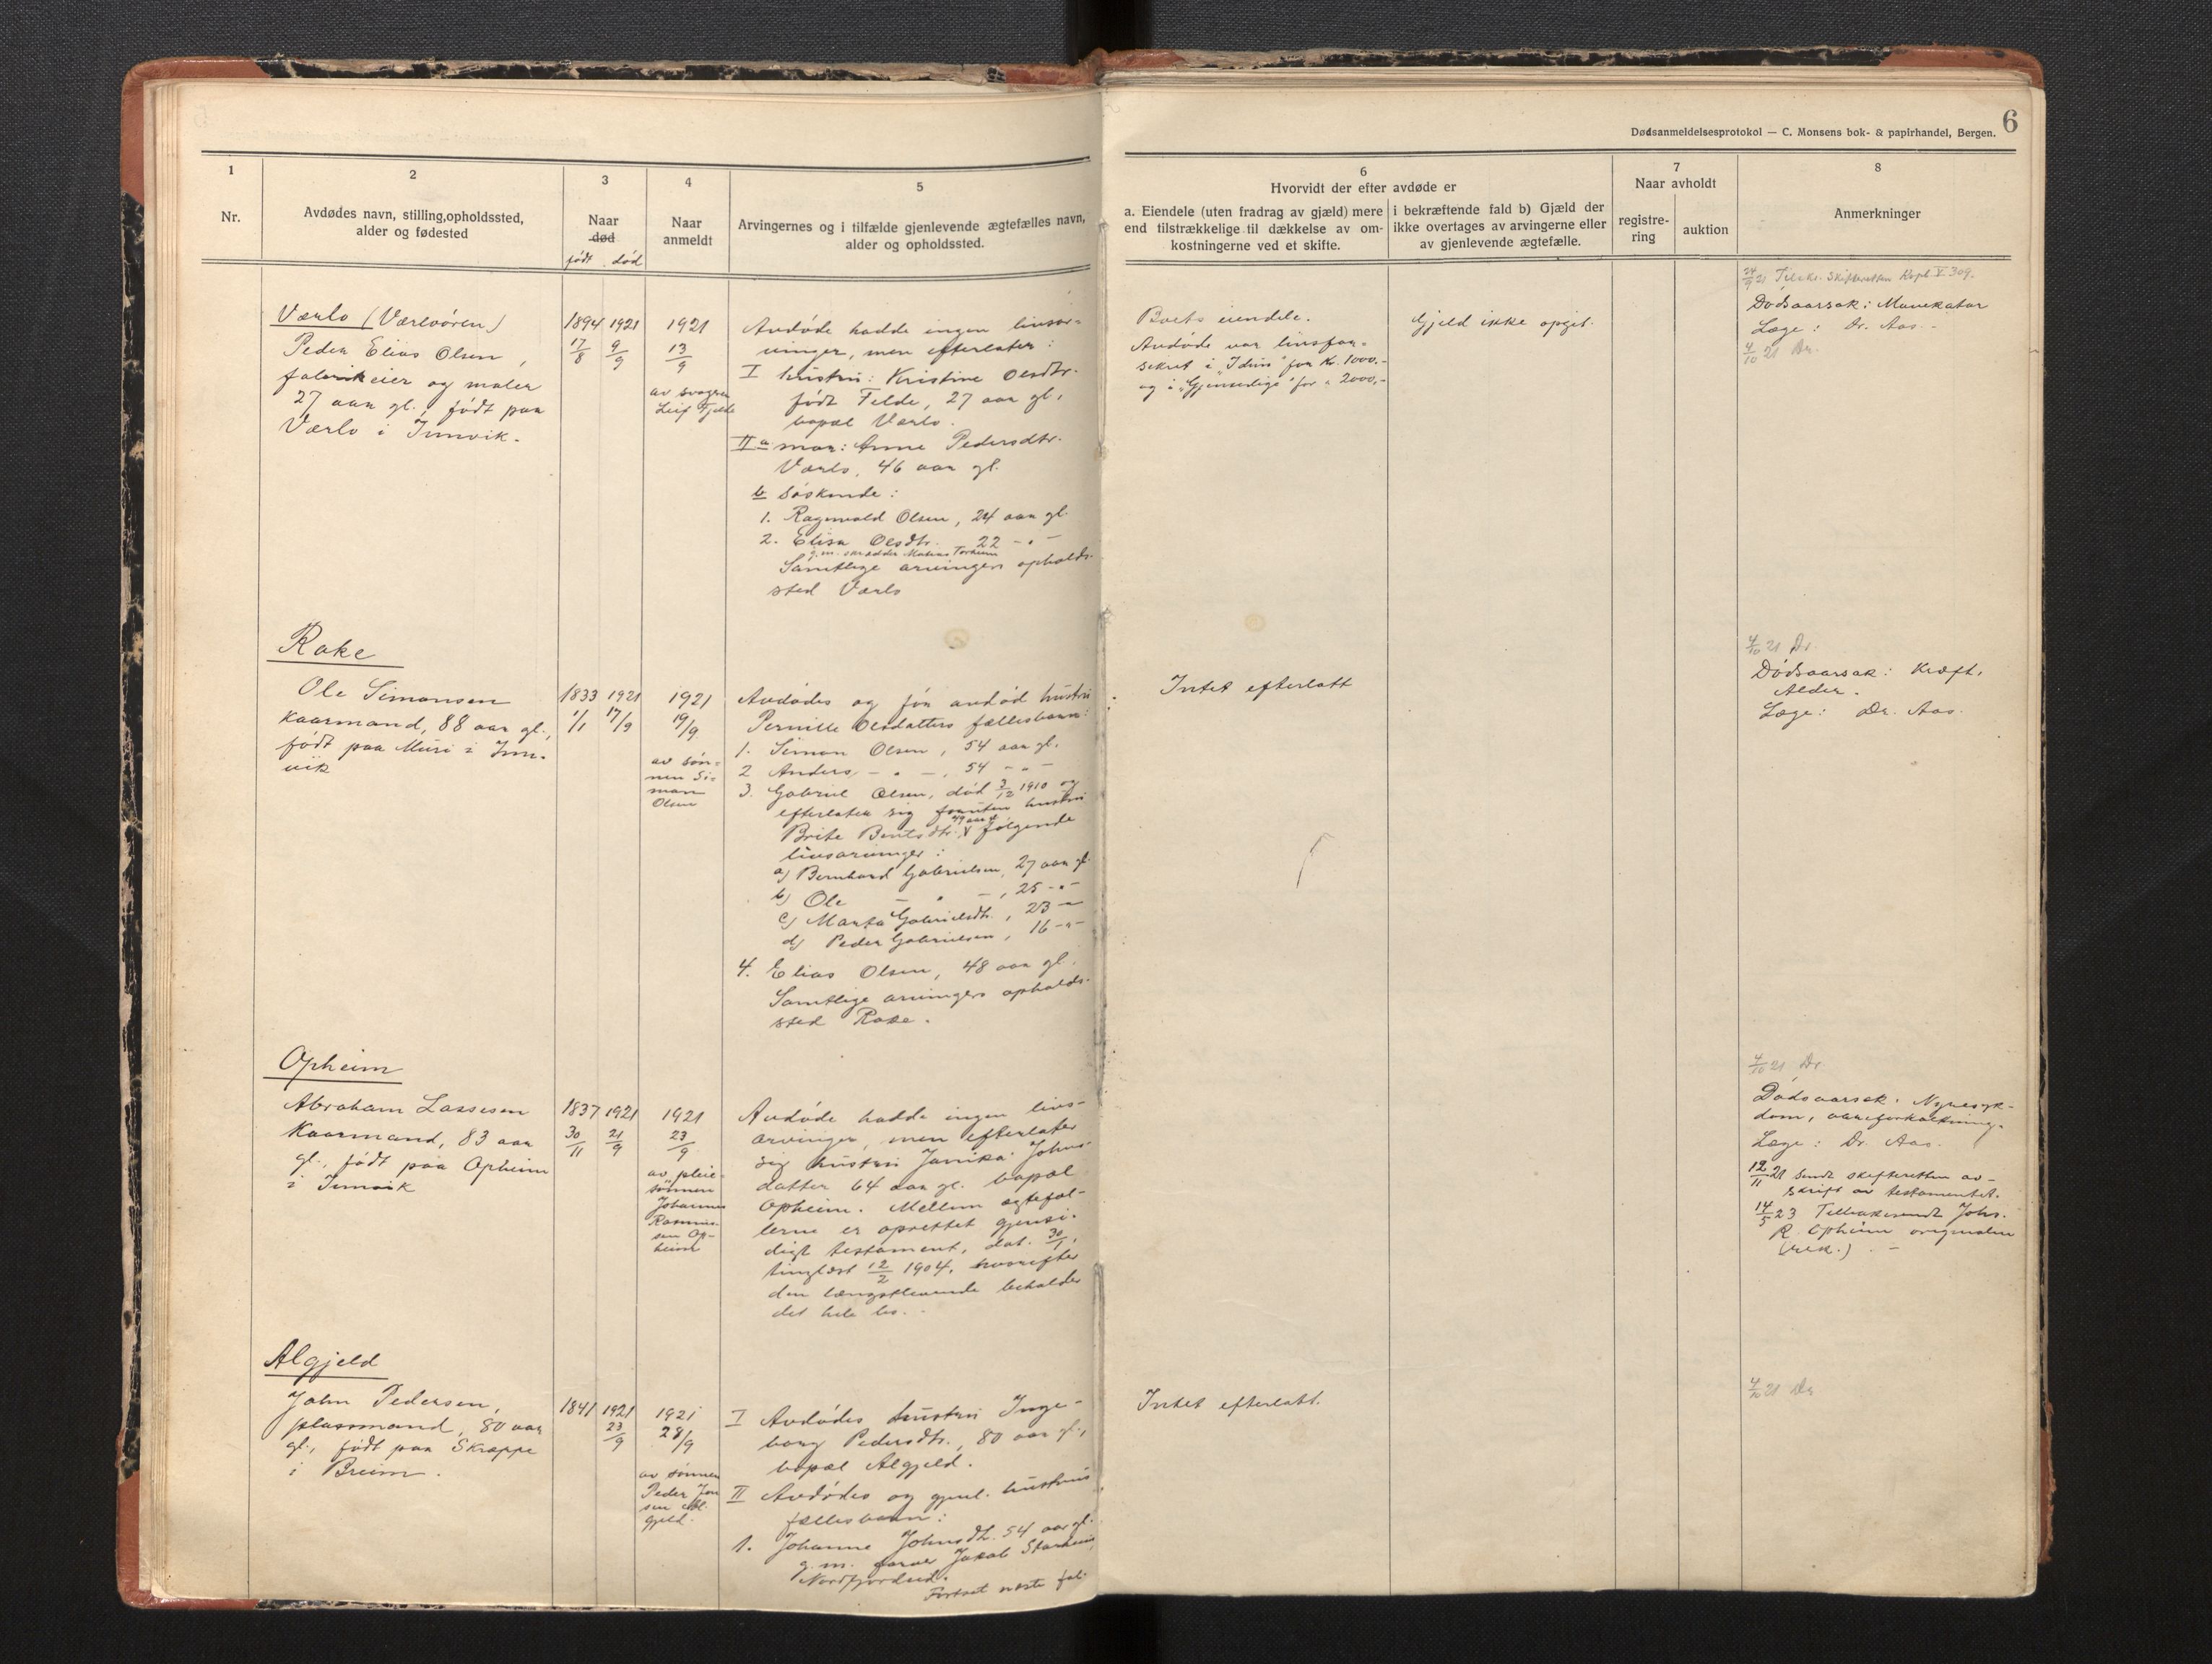 6
Dødsanmeldelsesprotokol — C. Monsens bok- & papirhandel, Bergen.
1
Nr.
2
Avdødes navn, stilling, opholdssted,
alder og fødested
3
Naar
død
født død
4
Naar
anmeldt
5
Arvingernes og i tilfælde gjenlevende ægtefælles navn,
alder og opholdssted.
6
Hvorvidt der efter avdøde er
a. Eiendele (uten fradrag av gjæld) mere
end tilstrækkelige til dækkelse av om-
kostningerne ved et skifte.
i bekræftende fald b) Gjæld der
ikke overtages av arvingerne eller
av gjenlevende ægtefælle.
7
Naar avholdt
registre-
ring
auktion
8
Anmerkninger
Værlo (Værlvören)
Peder Elias Olsen,
fabrikeier og maler
27 aar gl., født paa
Værlo i Innvik.
1894 1921
17/8 9/9
1921
13/9
av svogeren
Leif Fjelde
Avdøde hadde ingen livsar-
vinger, men efterlater:
I hustru: Kristine Olsdtr.
født Felde, 27 aar gl.,
bopæl Værlo.
II a mor: Anne Pedersdtr.
Værlo, 46 aar gl.
b søskende:
1. Ragnvald Olsen, 24 aar gl.
2. Elisa Olsdtr. 22 - " -
g.m. skrædder Torheim
Samtlige arvingers opholds-
sted Værlo
Boets eiendele.
Avdøde var livsfor-
sikret i "Idun" for Kr. 1000.-
og i "Gjensidige" for " 2000,-
Gjeld ikke opgit.
24/9 21 Skifteretten Kopb V 309.
Dødsaarsak: Mavekatar
Læge: Dr. Aas. -
4/10 21 Dr.
Rake
Ole Simonsen
kaarmand, 88 aar gl.,
født paa Muri i Inn-
vik
1833 1921
1/1 17/9
1921
19/9
av søn-
nen Si-
mon
Olsen
Avdødes og før avdød hustru
Pernille Olsdatters fællesbarn:
1. Simon Olsen, 54 aar gl.
2 Anders, - " -, 54 - " -
3. Gabriel Olsen, død 3/12 1910 og
efterlater sig foruten hustru
Brite Bentsdtr. følgende
livsarvinger:
a) Bernhard Gabrielsen, 27 aar gl.
b) Ole - " -, 25 - " -
c) Marta Gabrielsdtr., 23 - "
d) Peder Gabrielsen, 16 - " -
4. Elias Olsen, 48 aar gl.
Samtlige arvingers opholds-
sted Rake.
Intet efterlatt
4/10 21 Dr
Dødsaarsak: Kræft,
Alder.
Læge: Dr. Aas.
Opheim
Abraham Lassesen
Kaarmand, 83 aar
gl., født paa Opheim
i Innvik
1837 1921
30/11 21/9
1921
23/9
av pleie-
sønnen
Johannes
Rasmus-
sen Op-
heim
Avdøde hadde ingen livs-
arvinger, men efterlater
sig hustru Janika Johns-
datter 64 aar gl. bopæl
Opheim. Mellem ægtefæl-
lerne er oprettet gjensi-
digt testament, dat. 30/1,
tinglæst 12/2 1904, hvorefter
den længstlevende beholder
det hele bo. -
4/10 21 Dr.
Dødsaarsak: Nyresyk-
dom, aareforkalkning.
Læge: Dr. Aas.
12/11 21 Sendt skifteretten av-
skrift av testamentet.
14/5 23 Tilbakesendt Johs.
R. Opheim originalen
(rek.). -
Algjeld
John Pedersen,
plassmand, 80 aar
gl., født paa Skræppe
i Breim.
1841 1921
23/9
1921
28/9
av sønnen
Peder Jon
sen Al-
gjeld.
I Avdødes hustru Inge-
borg Pedersdtr., 80 aar gl.,
bopæl Algjeld.
II Avdødes og gjenl. hustrus
fællesbarn:
1. Johanne Johnsdtr. 54 aar gl.
g.m. garver Jakob Starheim,
Nordfjordeid.
Fortsat næste fol.
Intet efterlatt.
4/10 21 Dr